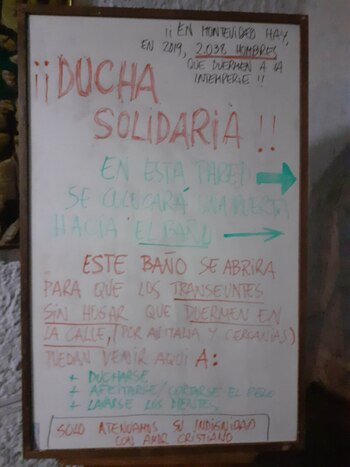 ¡¡ EN MONTEVIDEO HAY,
EN 2019, 2.038 HOMBRES
QUE DUERMEN A LA
INTEMPERIE !!
¡¡DUCHA
SOLIDARIA !!
EN ESTA PARED
SE COLOCARÁ UNA PUERTA
HACIA EL BAÑO
ESTE BAÑO SE ABRIRA
PARA QUE LOS TRANSEUNTES
SIN HOGAR QUE DUERMEN EN
LA CALLE, (POR AGITALIA Y CERCANIAS)
PUEDAN VENIR AQUI A:
+ DUCHARSE
+ AFEITARSE/CORTARSE EL PELO
+ LAVARSE LOS DIENTES
SOLO ATENUAMOS SU INDIGNIDAD
CON AMOR CRISTIANO